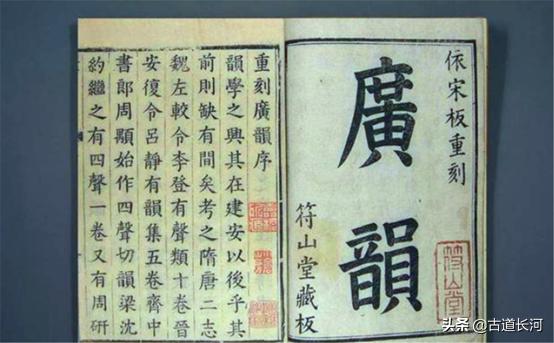 依宋板重刻
廣韻
符山堂藏板
符山堂
重刻廣韻序
韻學之興其在建安以後乎其
前則缺有間矣考之隋唐二志
魏左較令李登有聲類十卷晉
安復令呂靜有韻集五卷齊中
書郎周顒始作四聲切韻梁沈
約繼之有四聲一卷又有周研
头条 @古道长河